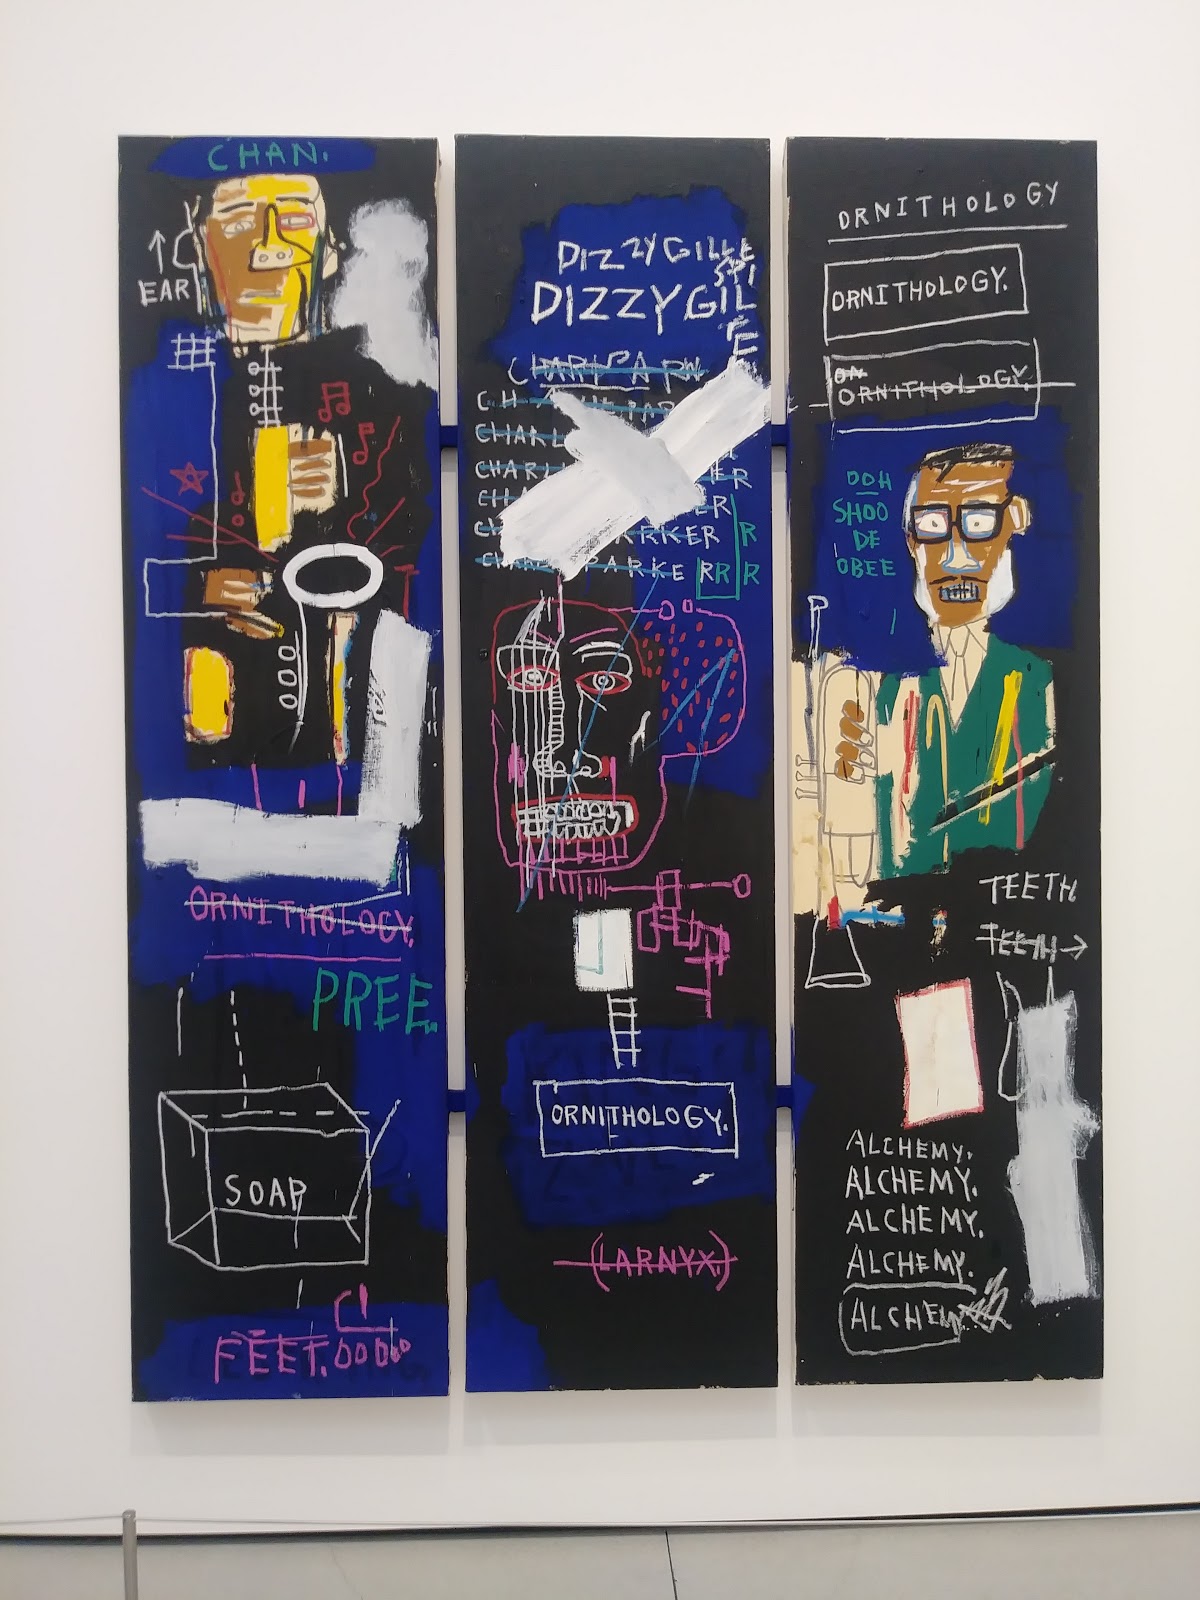 CHAN.
EAR
ORNITHOLOGY.
PREE.
SOAP
FEET.
DIZZYGILLE
SPI
DIZZYGIL
CHAR
CHAR
PARKE RR R
ORNITHOLOGY.
(LARNYX.)
ORNITHOLOGY
ORNITHOLOGY.
ORNITHOLOGY.
OOH
SHOO
DE
OBEE
TEETH
TEETH
ALCHEMY.
ALCHEMY.
ALCHEMY.
ALCHEMY.
ALCHEM